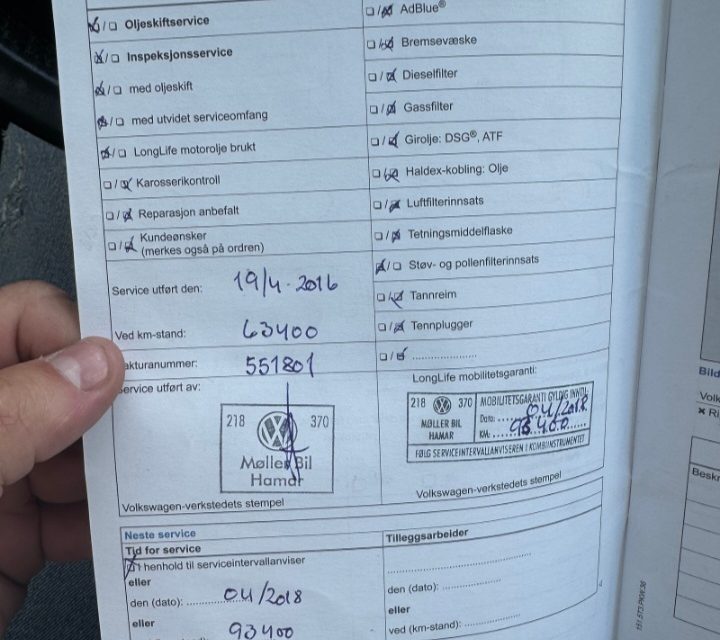 Oljeskiftservice
Inspeksjonsservice
med oljeskift
med utvidet serviceomfang
LongLife motorolje brukt
Karosserikontroll
Reparasjon anbefalt
Kundeønsker
(merkes også på ordren)
Service utført den: 19/4-2016
Ved km-stand: 63400
akturanummer: 551801
ervice utført av:
218 370
Møller Bil
Hamar
Volkswagen-verkstedets stempel
AdBlue®
Bremsevæske
Dieselfilter
Gassfilter
Girolje: DSG®, ATF
Haldex-kobling: Olje
Luftfilterinnsats
Tetningsmiddelflaske
Støv- og pollenfilterinnsats
Tannreim
Tennplugger
LongLife mobilitetsgaranti:
218 370 MOBILITETSGARANTI GYLDIG INNTIL
MØLLER BIL
HAMAR
Dato: 04/2018
KM: 93400
FØLG SERVICEINTERVALLANVISEREN I KOMBIINSTRUMENTET
Volkswagen-verkstedets stempel
Neste service
Tid for service
I henhold til serviceintervallanviser
eller
den (dato): 04/2018
eller
93400
Tilleggsarbeider
den (dato):
eller
ved (km-stand):
Bild
Volk
Beskr